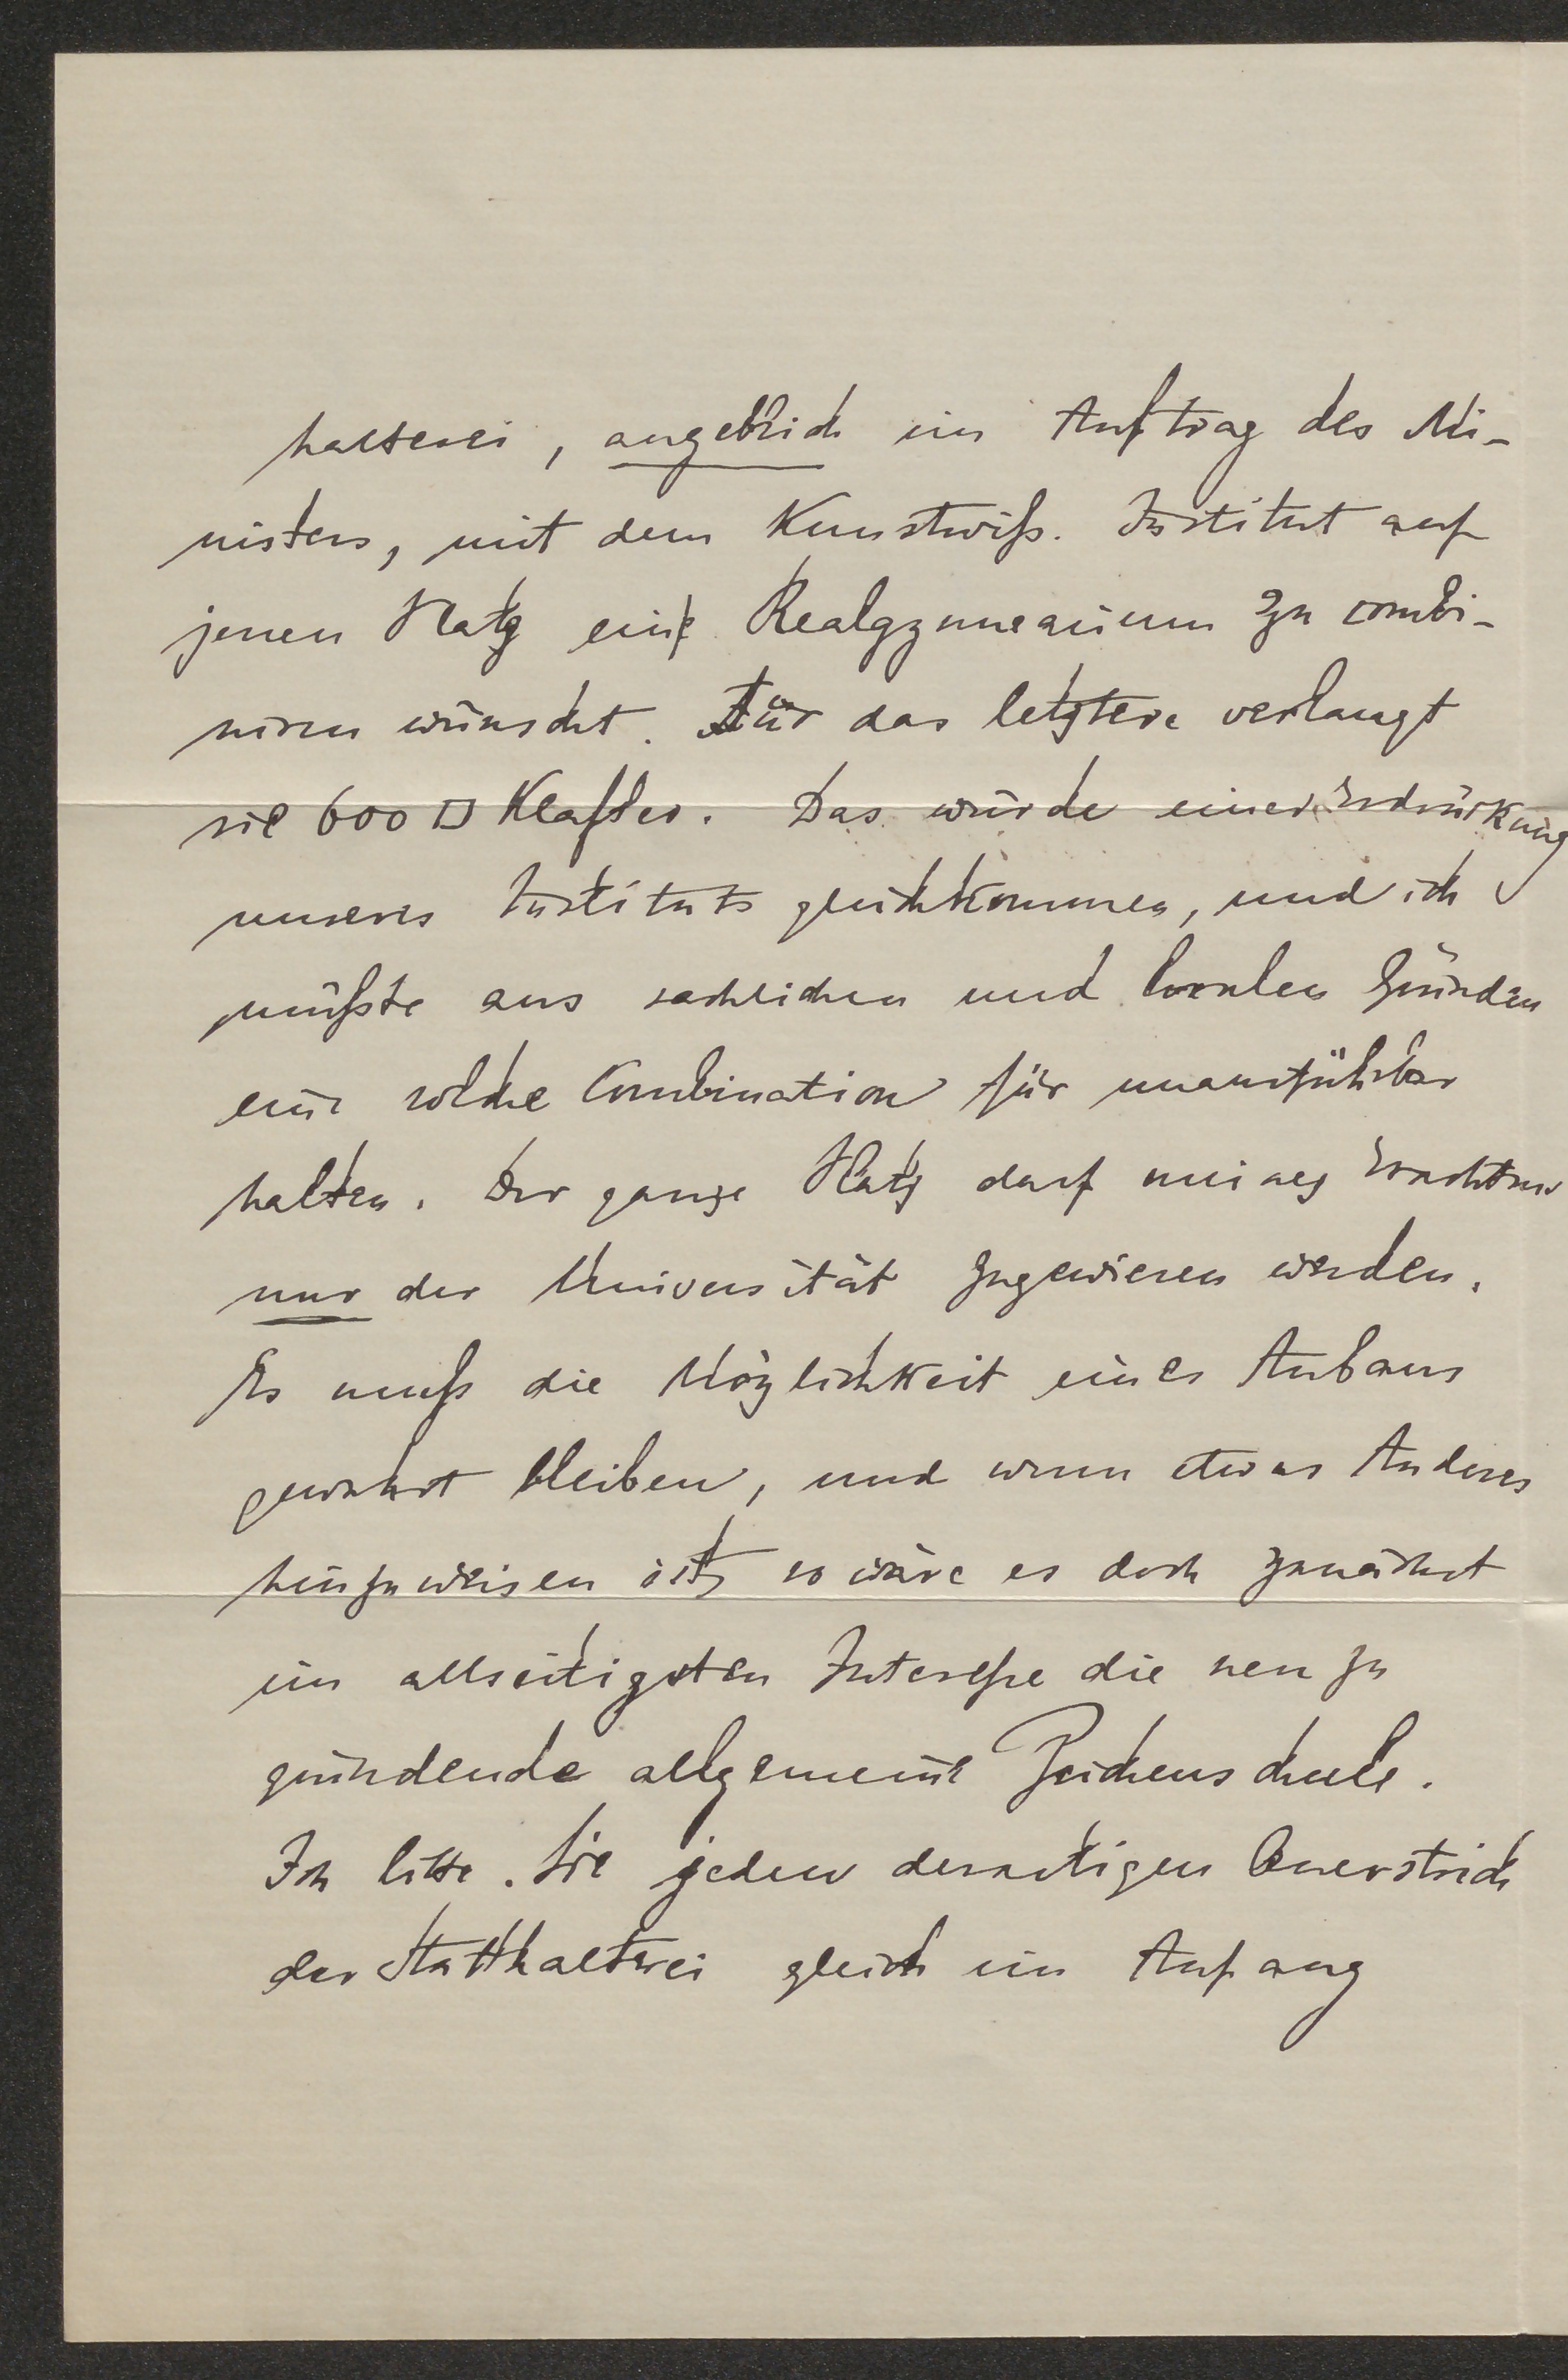 halterei, angeblich im Auftrag des Mi-
nisters, mit dem Kunstwiß. Institut auf
jenen Platz ein Realgymnasium zu combi-
niren wünscht. Für das letztere verlangt
sie 600 □ Klafter. Das würde einer Erdrückung
unseres Instituts gleichkommen, und ich
müßte aus sachlichen und localen Gründen
eine solche Combination für unausführbar
halten. Der ganze Platz darf meines Erachtens
nur der Universität zugewiesen werden.
Es muß die Möglichkeit eines Anbaus
gewahrt bleiben, und wenn etwas Anderes
hinzuweisen ist, so wäre es doch zunächst
im allseitigsten Intereße die neu zu
gründende allgemeine Zeichenschule.
Ich bitte Sie jeden derartigen Querstrich
der Statthalterei gleich im Anfang